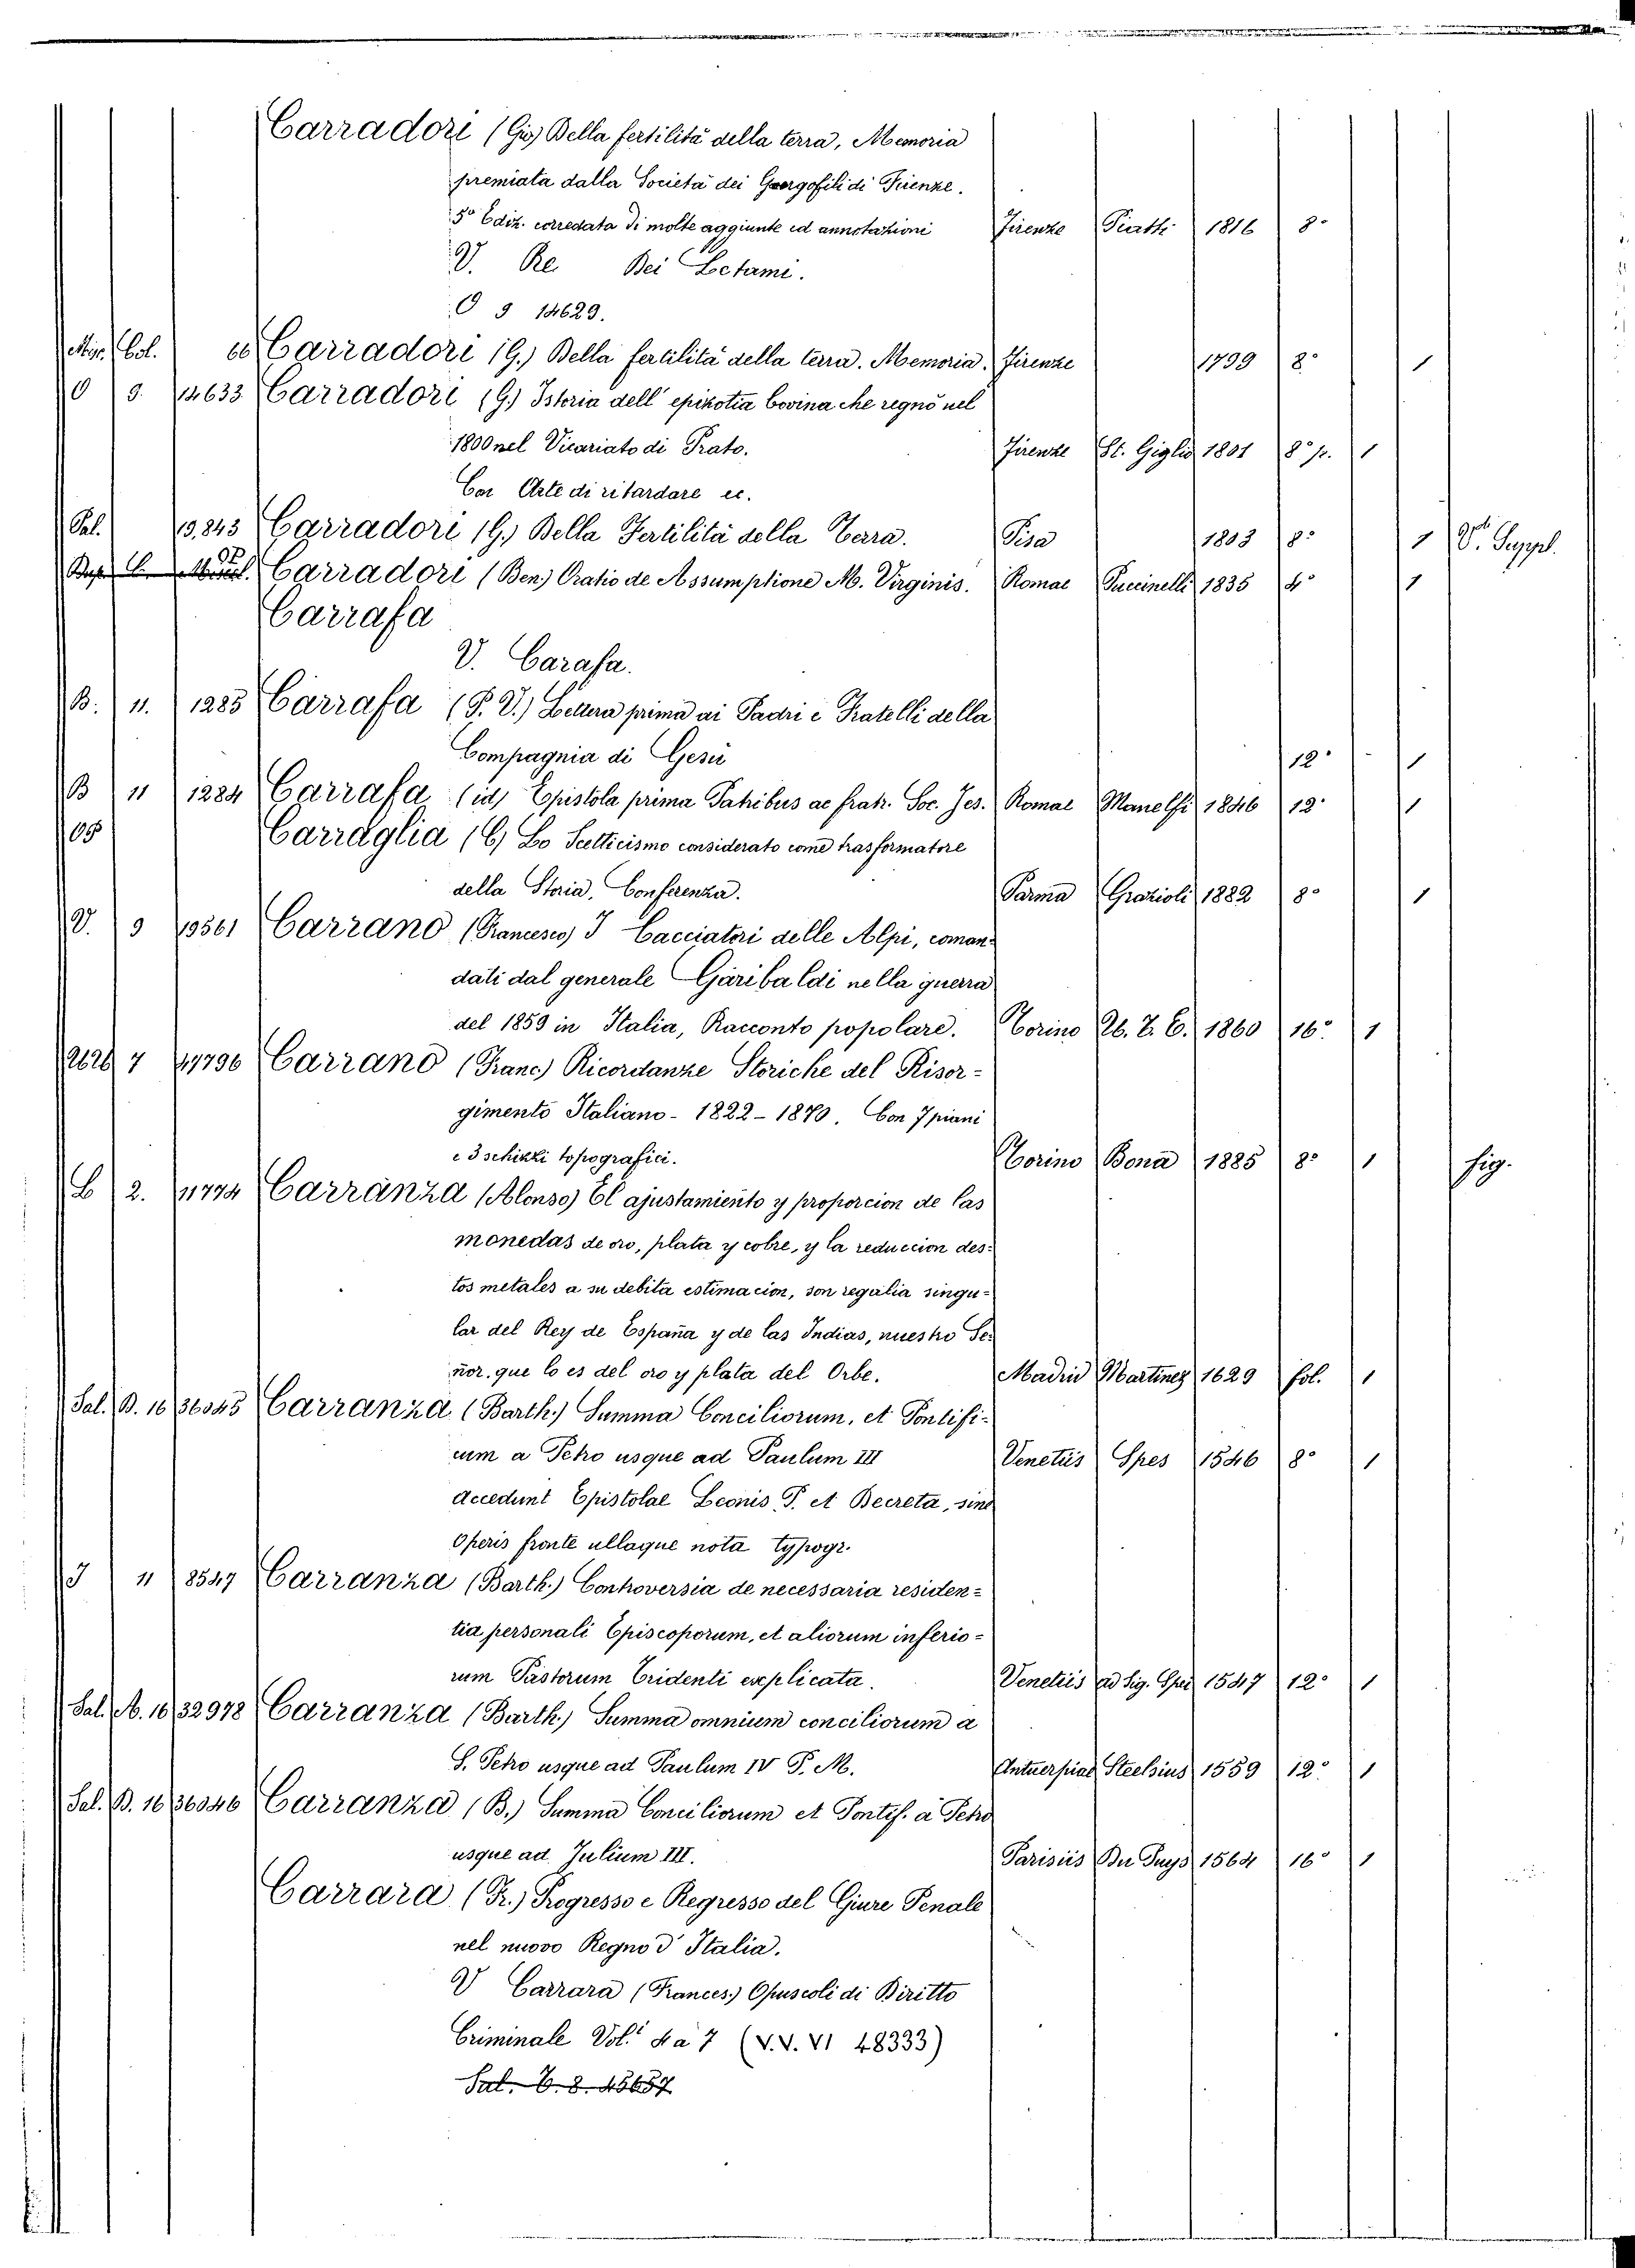 Carradori (Gio) Della fertilità della terra, Memoria
premiata dalla Società dei Georgofili di Firenze.
5ª Ediz. corredata di molte aggiunte ed annotazioni Firenze Piatti 1816 8º
V. Re Dei Letami.
O 9 14629.
Misc. Col. 66 Carradori (G.) Della fertilità della terra. Memoria. Firenze 1799 8º 1
O 9. 14633 Carradori (G.) Istoria dell' epizotia bovina che regnò nel
1800 nel Vicariato di Prato. Firenze St. Giglio 1801 8º p. 1
Con Arte di ritardare ec.
Sal. 19,843 Carradori (G.) Della Fertilità della Terra. Pisa 1803 8º 1 V. Suppl.
Carradori (Ben) Oratio de Assumptione M. Virginis. Romae Puccinelli 1835 4º 1
Carrafa
V. Carafa.
B. 11. 1285 Carrafa (P. V.) Lettera prima ai Padri e Fratelli della
Compagnia di Gesù 12º 1
B 11 1284 Carrafa (id) Epistola prima Patribus ac fratr. Soc. Jes. Romae Manelfi 1846 12º 1
Carraglia (C) Lo Scetticismo considerato come trasformatore
della Storia, Conferenza. Parma Grazioli 1882 8º 1
V. 9 19561 Carrano (Francesco) I Cacciatori delle Alpi, coman-
dati dal generale Garibaldi nella guerra
del 1859 in Italia, Racconto popolare. Torino U. T. E. 1860 16º 1
7 41796 Carrano (Franc) Ricordanze Storiche del Risor-
gimento Italiano - 1822 - 1870. Con 7 piani
e 3 schizzi topografici. Torino Bona 1885 8º 1 fig.
C 2. 11774 Carranza (Alonso) El ajustamiento y proporcion de las
monedas de oro, plata y cobre, y la reduccion des-
tos metales a su debita estimacion, son regalia singu-
lar del Rey de España y de las Indias, nuestro Se-
ñor, que lo es del oro y plata del Orbe. Madrid Martinez 1629 fol. 1
Sal. B. 16 36045 Carranza (Barth.) Summa Conciliorum, et Pontifi-
cum a Petro usque ad Paulum III Venetiis Spes 1546 8º 1
Accedunt Epistolae Leonis P. et Decreta, sine
Operis fronte ullaque nota typogr.
J 11 8547 Carranza (Barth.) Controversia de necessaria residen-
tia personali Episcoporum, et aliorum inferio-
rum Pastorum Tridenti explicata. Venetiis ad Sig. Spei 1547 12º 1
Sal. A. 16 32978 Carranza (Barth.) Summa omnium conciliorum a
S. Petro usque ad Paulum IV P. M. Antuerpiae Steelsius 1559 12º 1
Sal. B. 16 36046 Carranza (B.) Summa Conciliorum et Pontif. a Petro
usque ad Julium III. Parisiis Du Puys 1564 16º 1
Carrara (Fr.) Progresso e Regresso del Giure Penale
nel nuovo Regno d' Italia.
V Carrara (Frances.) Opuscoli di Diritto
Criminale Vol. 4 a 7 (V. V. VI 48333)
Sal. C. 8. 45657